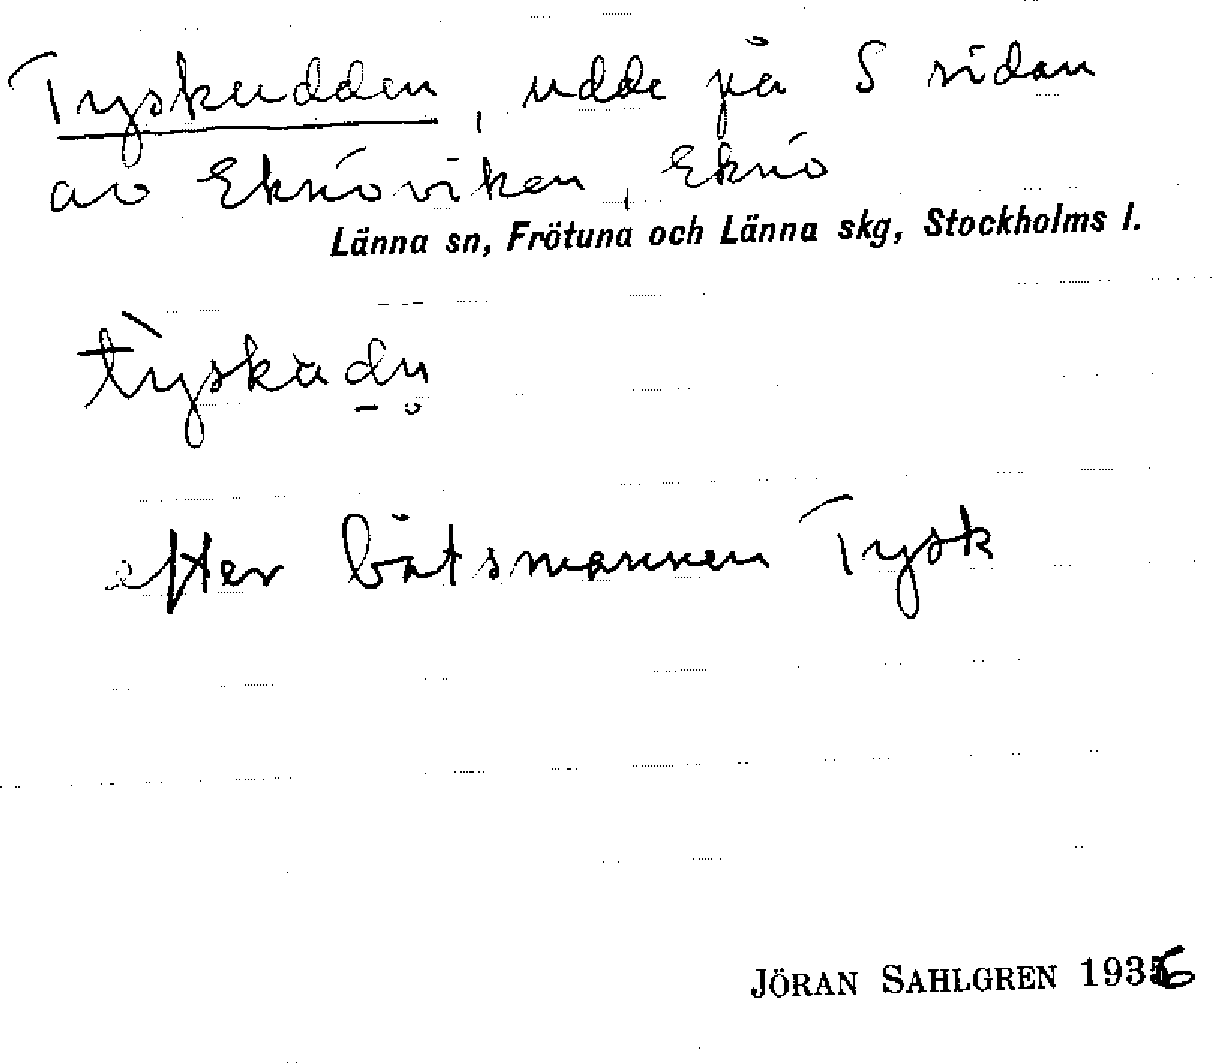 Tyskudden, udde på S sidan
av Eknöviken, Eknö
Länna sn, Frötuna och Länna skg, Stockholms l.
tỳskudn̥
efter båtsmannen Tysk
JÖRAN SAHLGREN 1936